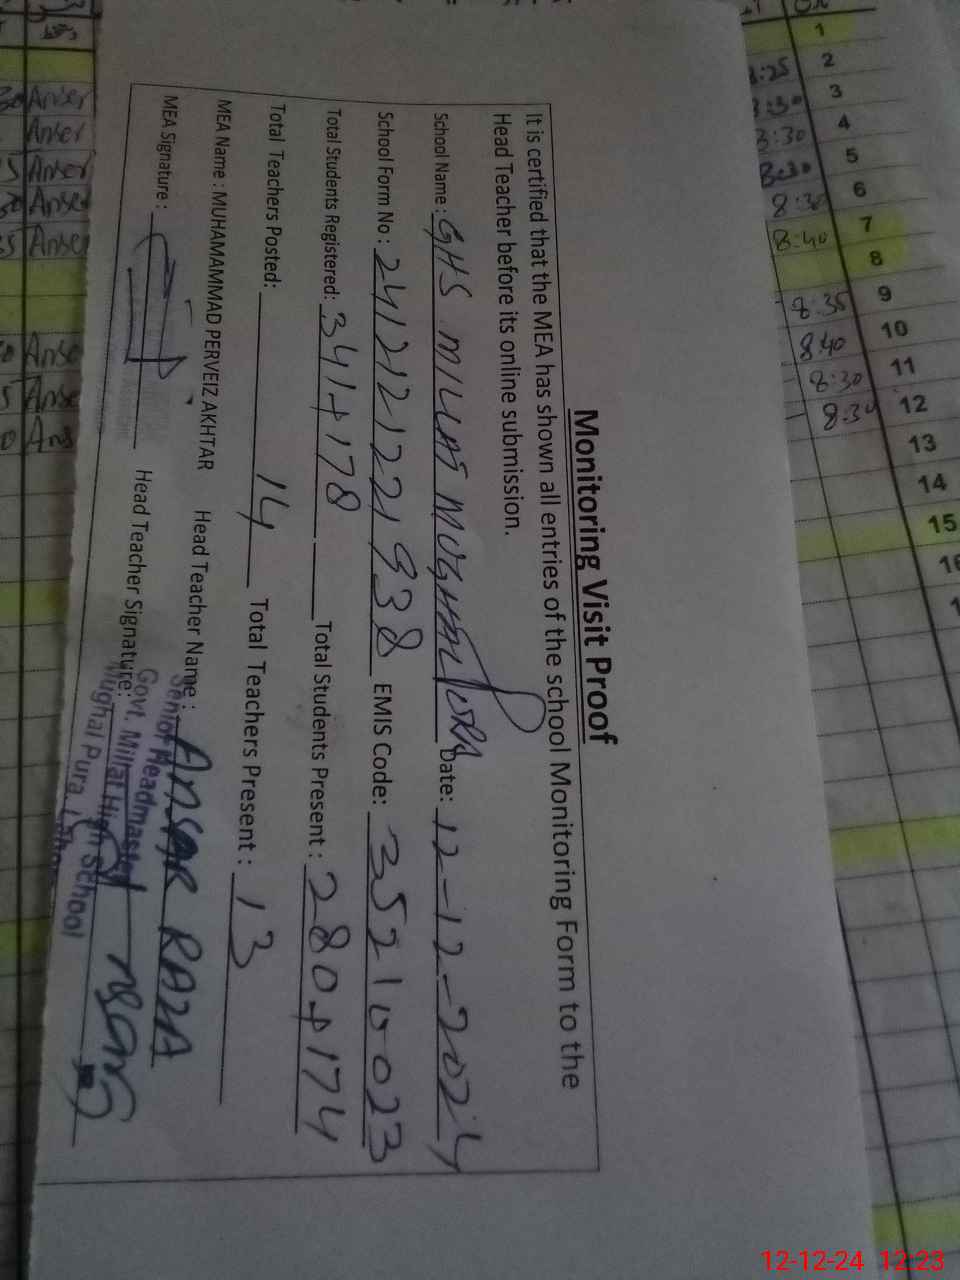 Monitoring Visit Proof
It is certified that the MEA has shown all entries of the school Monitoring Form to the
Head Teacher before its online submission.
School Name: GHS MILLAT MUGHALPURA Date: 12-12-2024
School Form No: 24121221938 EMIS Code: 35210023
Total Students Registered: 341+178 Total Students Present: 280+174
Total Teachers Posted: 14 Total Teachers Present: 13
MEA Name: MUHAMAMMAD PERVEIZ AKHTAR Head Teacher Name: ANSAR RAZA
MEA Signature: Head Teacher Signature:
Senior Headmaster
Govt. Millat High School
Mughal Pura,
1
2
3
4
5
6
7
8
9
10
11
12
13
14
15
8:30
8:30
8:40
8:35
8:40
8:30
8:30
Anser
Anser
Anser
Anser
Anser
12-12-24 12:23